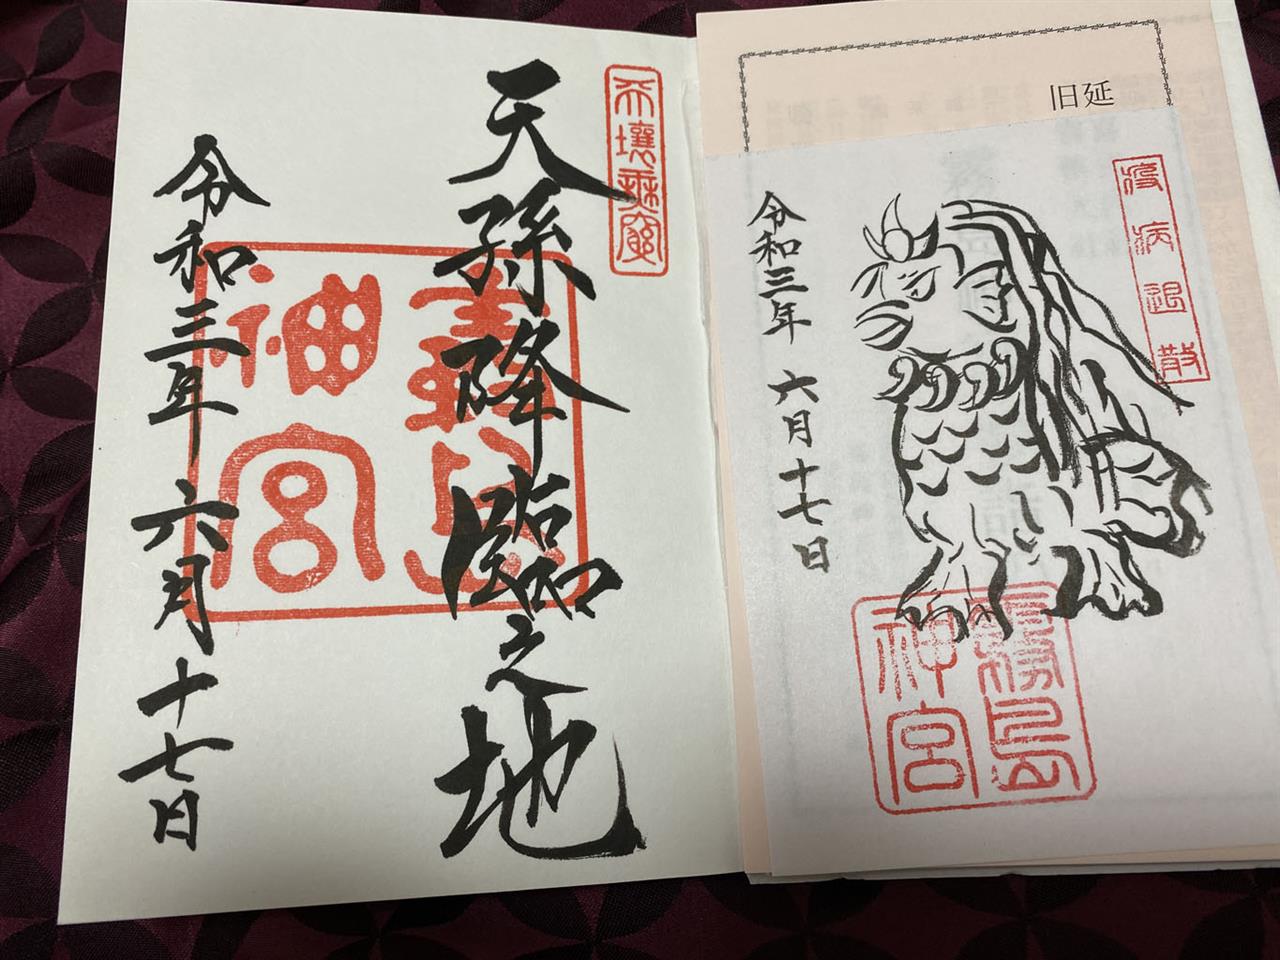 天壌無窮
天孫降臨之地
霧島
神宮
令和三年六月十七日
旧延
疫病退散
令和三年 六月十七日
霧島
神宮